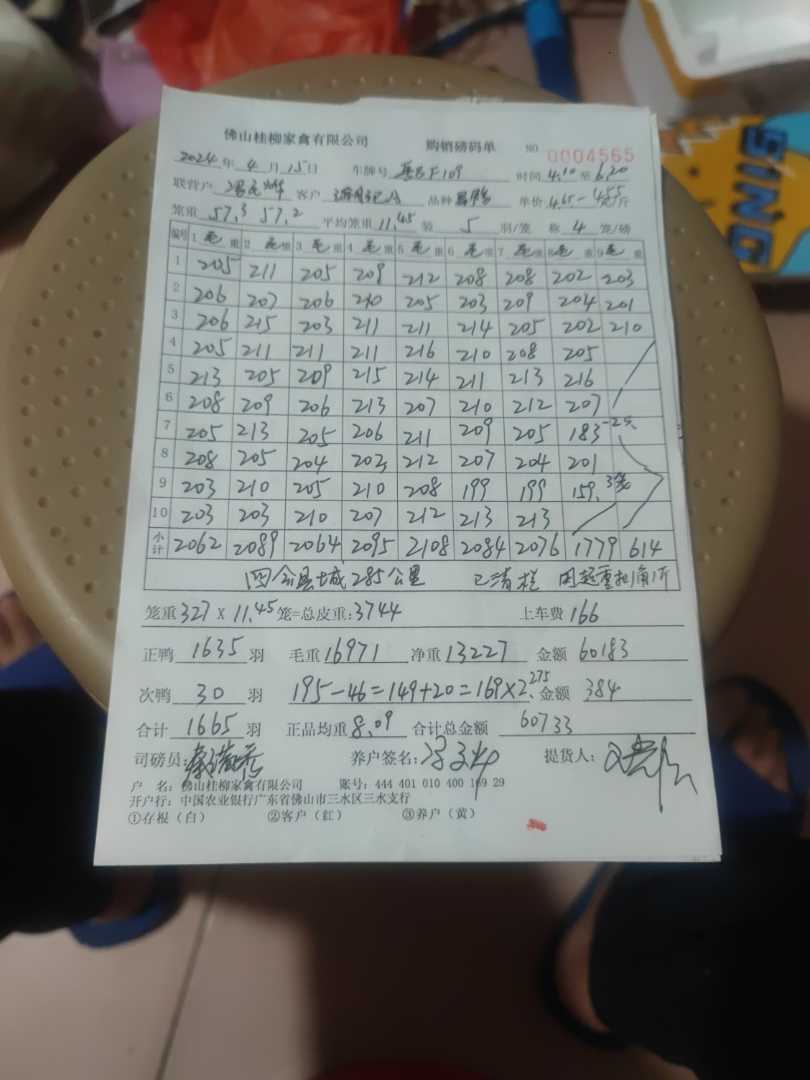 佛山桂柳家禽有限公司 购销磅码单 NO 0004565
2024年4月15日 车牌号 F109 时间4.10至6.20
联营户 客户 品种 单价4.45-4.55元/斤
笼重57.3 57.2 平均笼重11.45 装5羽/笼 称4笼/磅
编号 1毛重 2毛重 3毛重 4毛重 5毛重 6毛重 7毛重 8毛重 9毛重
1 205 211 205 209 212 208 208 202 203
2 206 207 206 210 205 203 209 204 201
3 206 215 203 211 211 214 205 202 210
4 205 211 211 211 216 210 208 205
5 213 205 209 215 214 211 213 216
6 208 209 206 213 207 210 212 207
7 205 213 205 206 211 209 205 183
8 208 205 204 203 212 207 204 201
9 203 210 205 210 208 199 199 159 3笼
10 203 203 210 207 212 213 213
小计 2062 2089 2064 2095 2108 2084 2076 1779 614
四会县城285公里 已清栏
笼重327X11.45笼=总皮重:3744 上车费166
正鸭1635羽 毛重16971 净重13227 金额60183
次鸭30羽 195-46=149+20=169×2.275 金额384
合计1665羽 正品均重8.09 合计总金额60733
司磅员: 养户签名: 提货人:
户 名:佛山桂柳家禽有限公司 账号:444 401 010 400 169 29
开户行:中国农业银行广东省佛山市三水区三水支行
①存根(白) ②客户(红) ③养户(黄)
SING